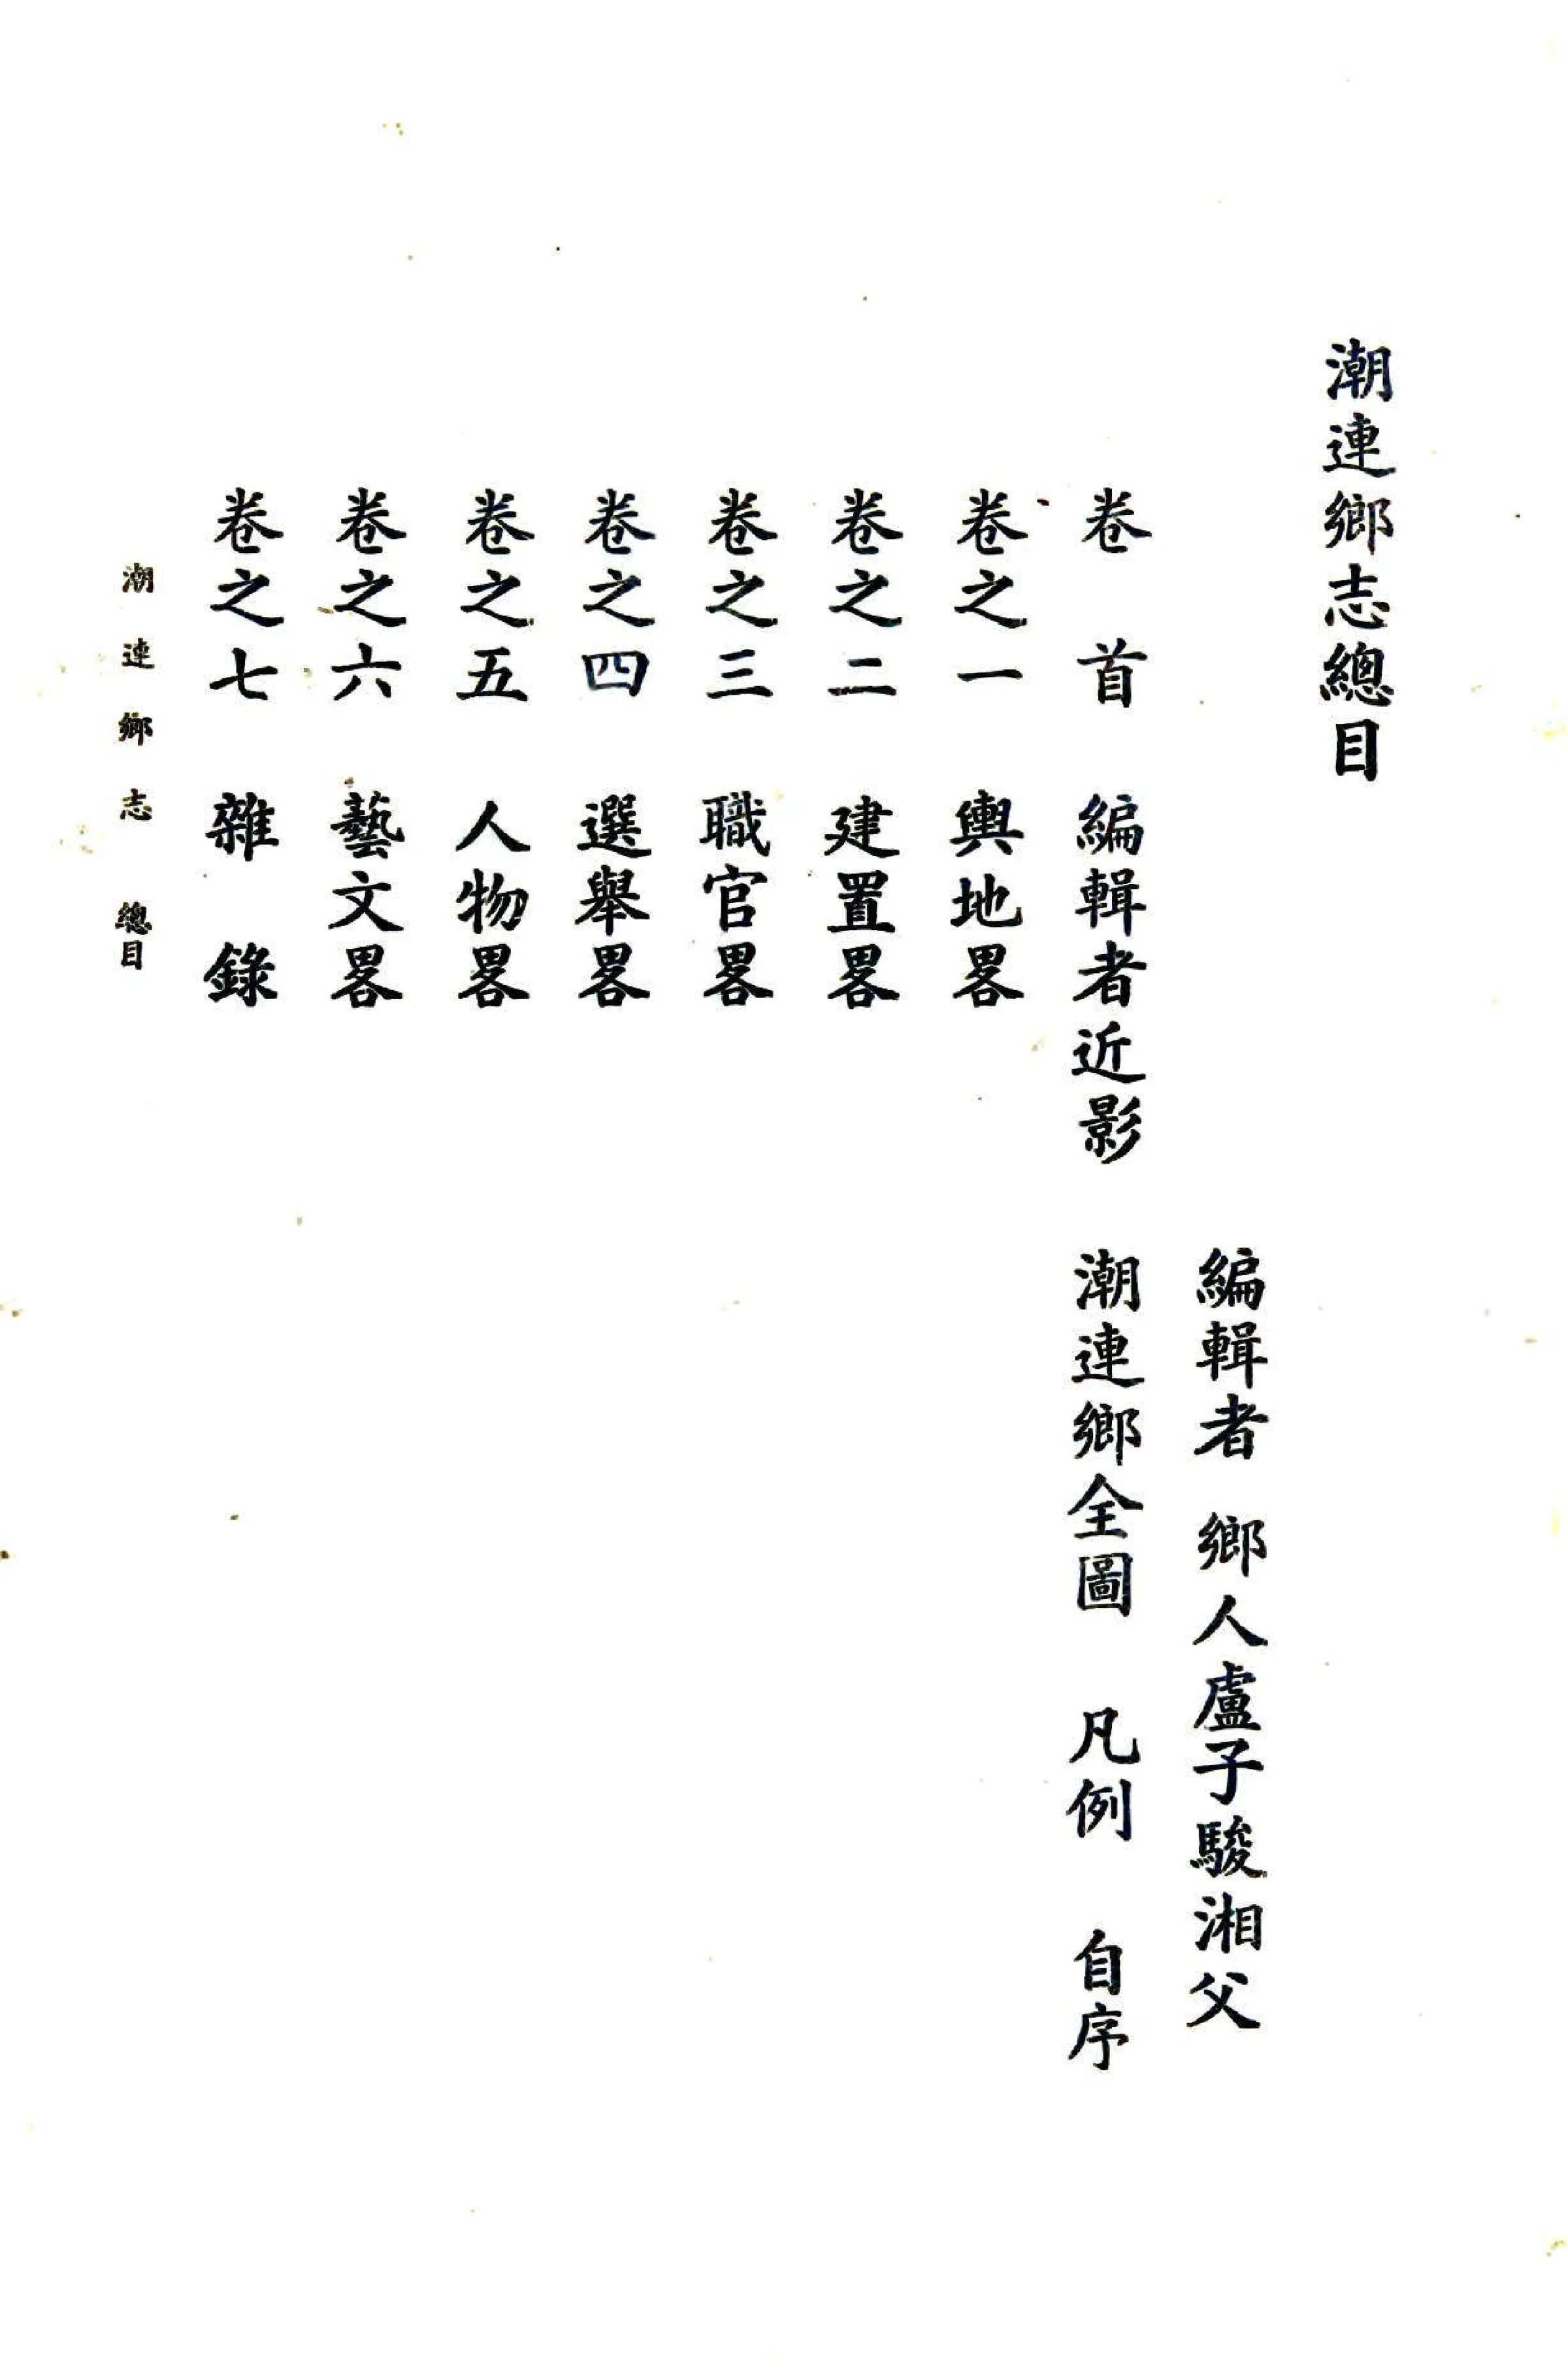 潮連鄉志總目
編輯者 鄉人盧子駿湘父
卷 首 編輯者近影 潮連鄉全圖 凡例 自序
卷之一 輿地畧
卷之二 建置畧
卷之三 職官畧
卷之四 選舉畧
卷之五 人物畧
卷之六 藝文畧
卷之七 雜 錄
潮連鄉志 總目